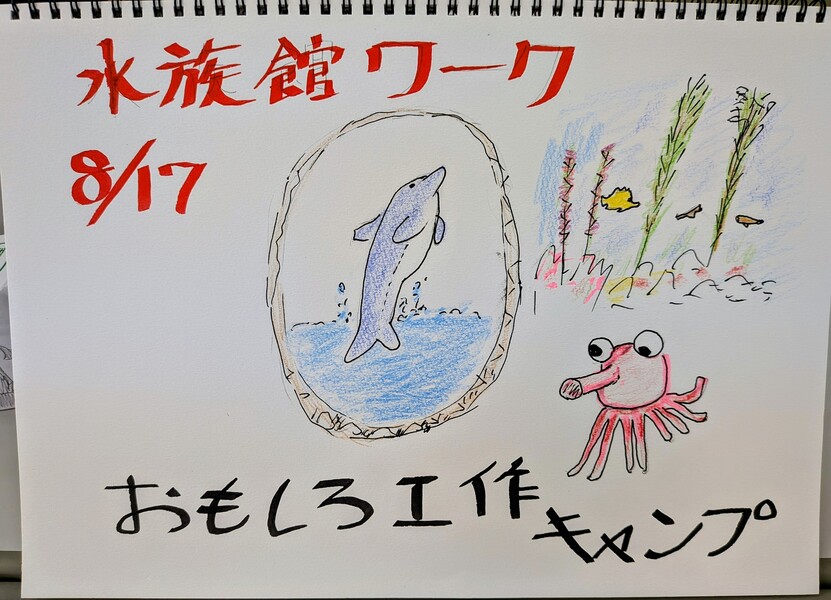 水族館ワーク
8/17
おもしろ工作
キャンプ